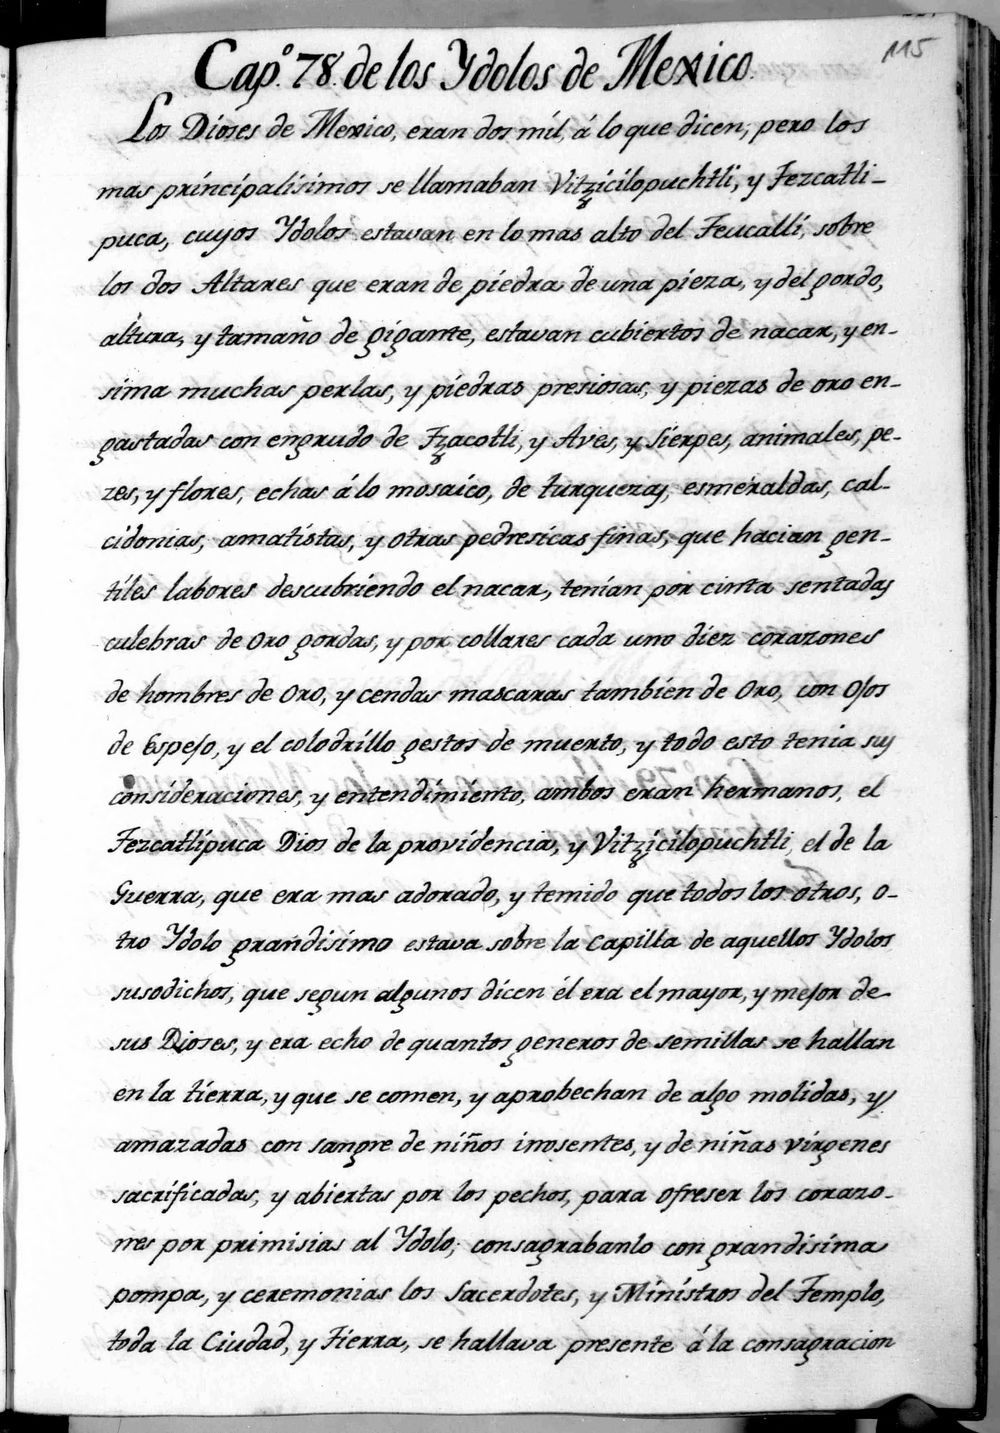 115
Cap.º 78. de los Ydolos de Mexico.
Los Dioses de Mexico, eran dos mil, á lo que dicen, pero los
mas principalisimos se llamaban Vitzicilopuchtli, y Tezcatli-
puca, cuyos Ydolos estavan en lo mas alto del Teucalli, sobre
los dos Altares que eran de piedra de una pieza, y del gordo,
altura, y tamaño de gigante, estavan cubiertos de nacar, y en-
sima muchas perlas, y piedras presiosas, y piezas de oro en-
gastadas con engrudo de Tzacotli, y Aves, y Sierpes, animales, pe-
zes, y flores, echas á lo mosaico, de turquezas, esmeraldas, cal-
cidonias, amatistas, y otras pedresicas finas, que hacian gen-
tiles labores descubriendo el nacar, tenian por cinta sentadas
culebras de oro gordas, y por collares cada uno diez corazones
de hombres de oro, y cendas mascaras tambien de Oro, con Ojos
de Espejo, y el colodrillo gestos de muerto, y todo esto tenia sus
consideraciones, y entendimiento, ambos eran hermanos, el
Tezcatlipuca Dios de la providencia, y Vitzicilopuchtli, el de la
Guerra, que era mas adorado, y temido que todos los otros, o-
tro Ydolo grandisimo estava sobre la Capilla de aquellos Ydolos
susodichos, que segun algunos dicen él era el mayor, y mejor de
sus Dioses, y era echo de quantos generos de semillas se hallan
en la tierra, y que se comen, y aprobechan de algo molidas, y
amazadas con sangre de niños inosentes, y de niñas virgenes
sacrificadas, y abiertas por los pechos, para ofreser los corazo-
nes por primisias al Ydolo; consagrabanlo con grandisima
pompa, y ceremonias los Sacerdotes, y Ministros del Templo,
toda la Ciudad, y Tierra, se hallava presente á la consagracion